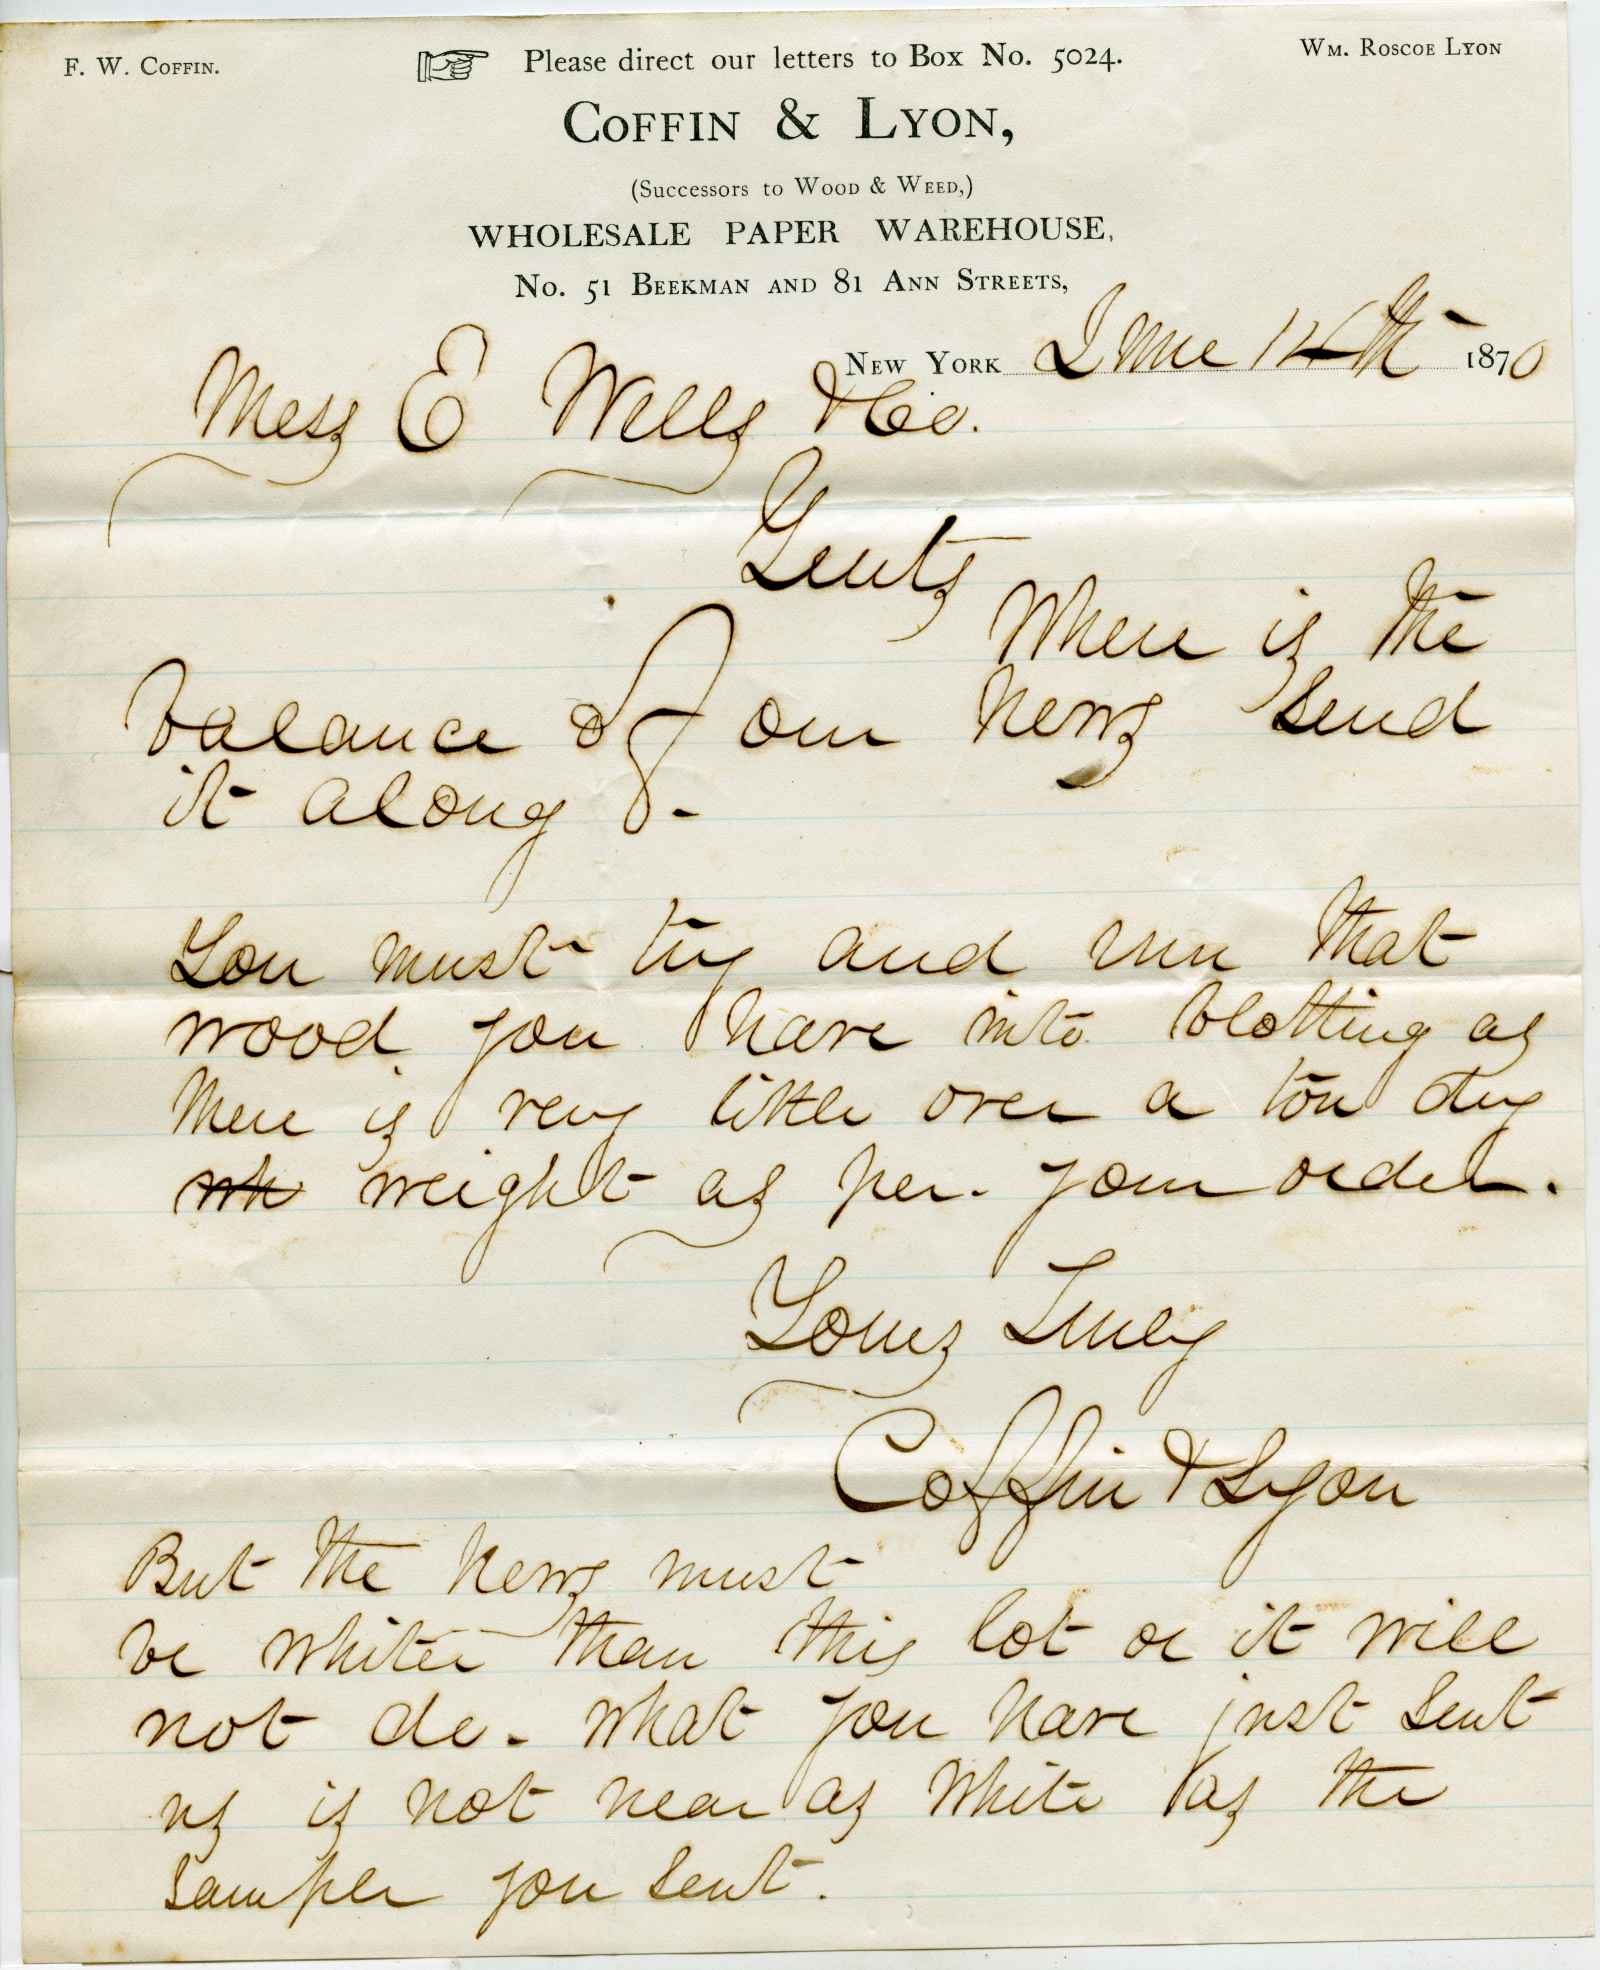 F. W. Coffin.
Please direct our letters to Box No. 5024.
Wm. Roscoe Lyon
Coffin & Lyon,
(Successors to Wood & Weed,)
WHOLESALE PAPER WAREHOUSE,
No. 51 Beekman and 81 Ann Streets,
New York June 14th 1870
Mess E Wells & Co.
Gents
Where is the
balance of our News Send
it along.
You must try and run that
wood you have into blotting as
there is very little over a ton dry
wh weight as per. your order.
Yours Truly
Coffin & Lyon
But the News must
be whiter than this lot or it will
not do. What you have just Sent
us is not near as White as the
Sample you Sent.